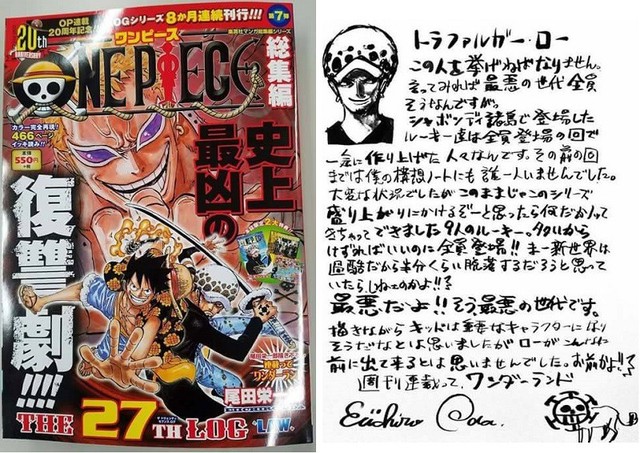 20th
ANNIVERSARY
OP連載
20周年記念
LOGシリーズ8か月連続刊行!!!
第7弾
集英社マンガ総集編シリーズ
ワンピース
ONE PIECE
総集編
カラー完全再現!!
466ページ
イッキ読み!!
550円
史上
最凶の
復讐劇!!!!
連載って
ワンダーランド
尾田栄一
THE 27TH LOG
"LAW"
トラファルガー・ロー
この人を挙げねばなりません。
そってみれば最悪の世代全員
そうなんですが。
シャボンディ諸島で登場した
ルーキー達は全員登場の回で
一気に作り上げた人々なんです。その前の回
までは僕の構想ノートにも誰一人いませんでした。
大変な状況でしたがこのままじゃこのシリーズ
盛り上がりにかけるぞーと思ったら何だか入って
きちゃってできました9人のルーキー。多いから
けずればいいのに全員登場!!まー新世界は
過酷だから半分くらい脱落するだろうと思って
いたらしねェのかよ!!?
最悪だよ!!そう最悪の世代です。
描きながらキッドは重要なキャラクターになり
そうだなとは思いましたがローがこんなに
前に出て来るとは思いませんでした。お前かよ!!?
週刊連載って、ワンダーランド
Eiichiro Oda.